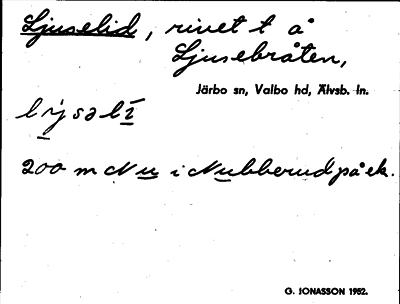 Ljuselid, rivet t å
Ljusebråten,
Järbo sn, Valbo hd, Älvsb. ln.
200 m N u i Nubberud på ek.
G. JONASSON 1952.